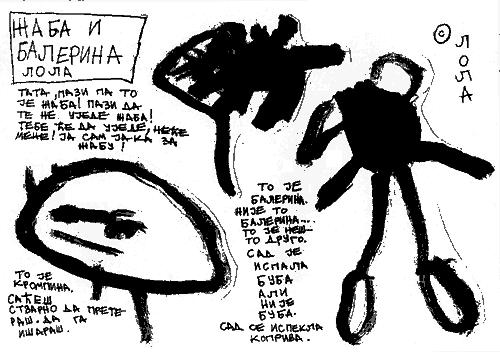 ЖАБА И
БАЛЕРИНА
ЛОЛА
ТАТА, ПАЗИ ПА ТО
ЈЕ ЖАБА! ПАЗИ ДА
ТЕ НЕ УЈЕДЕ ЖАБА!
ТЕБЕ ЋЕ ДА УЈЕДЕ, НЕЋЕ
МЕНЕ! ЈА САМ ЈАКА ЗА
ЖАБУ!
© ЛОЛА
ТО ЈЕ
БАЛЕРИНА.
НИЈЕ ТО
БАЛЕРИНА...
ТО ЈЕ НЕШ-
ТО ДРУГО.
САД ЈЕ
ИСПАЛА
БУБА
АЛИ
НИЈЕ
БУБА.
САД СЕ ИСПЕКЛА
КОПРИВА.
ТО ЈЕ
КРОМПИНА.
САЋЕШ
СТВАРНО ДА ПРЕТЕ-
РАШ. ДА ГА
ИШАРАШ.